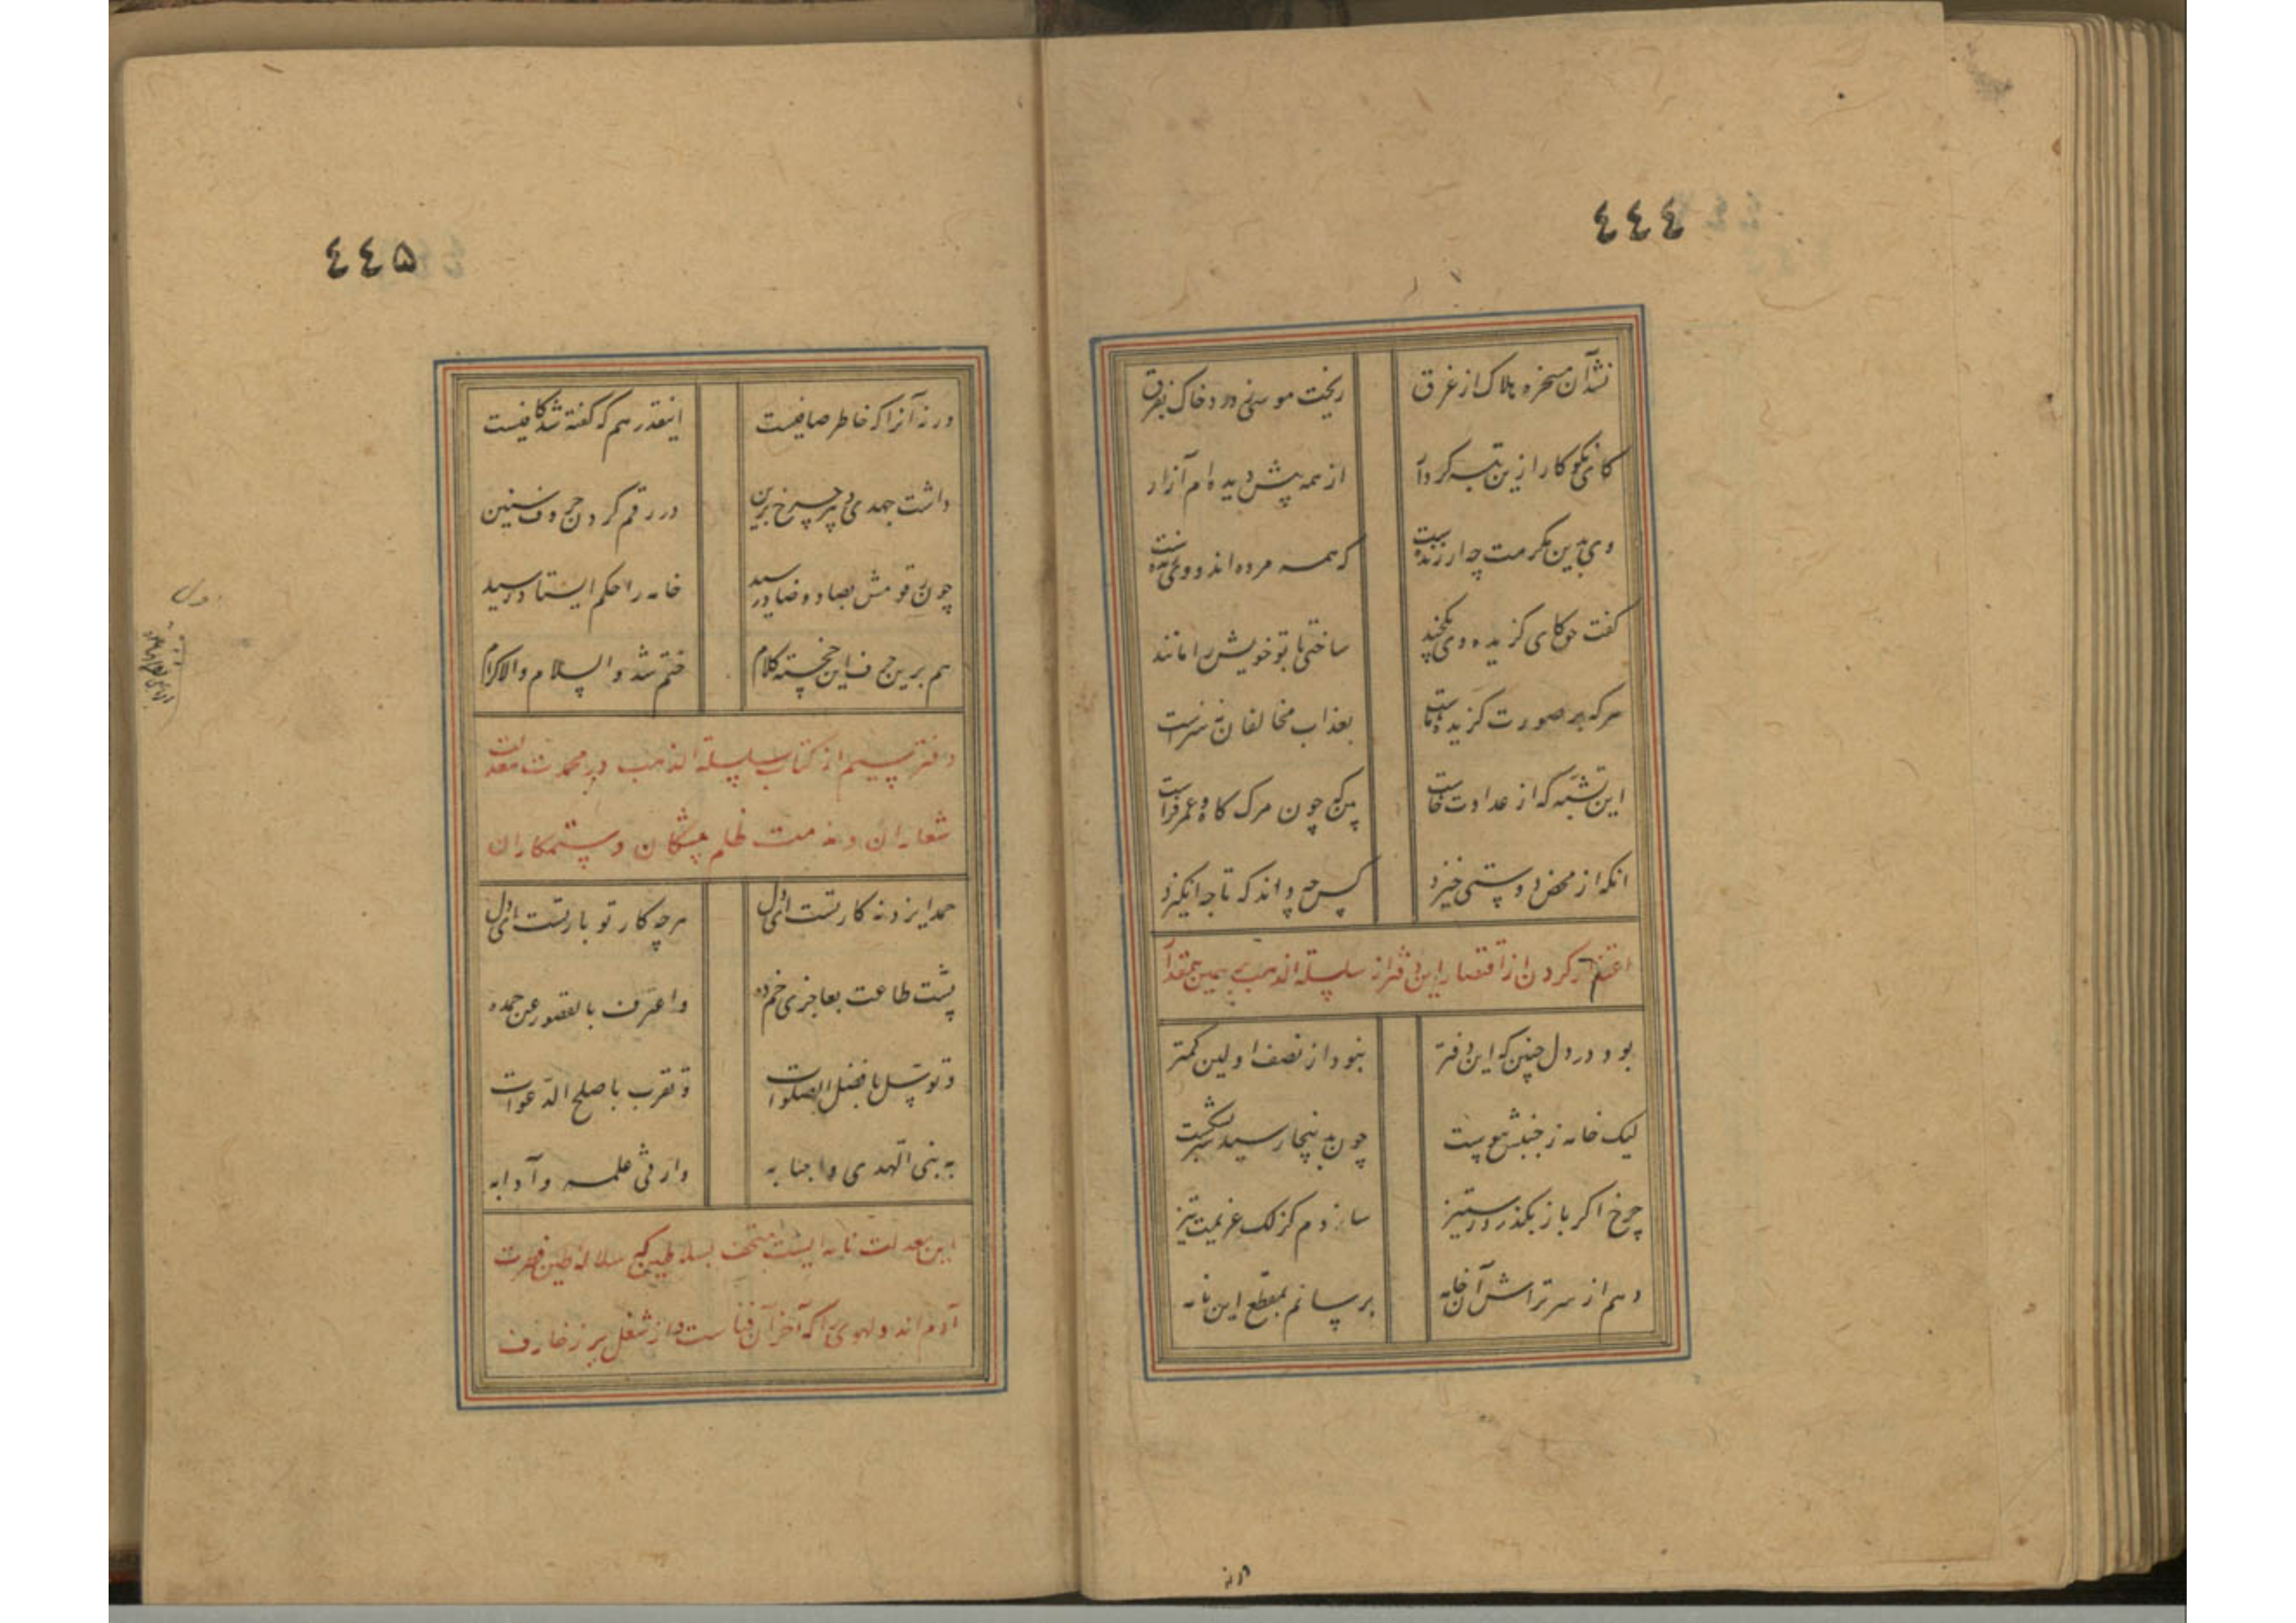 ٤٤٤
نشد آن مسخره هلاک از غرق ریخت موسی ز درد خاک بفرق
کای نکوکار ازین تبه کردار از همه پیش دیده ام آزار
وی بدین مکرمت چه ارزنده است که همه مرده اند و وی زنده است
گفت حق کای گزیده وی بکچند ساختی تا بتو خویش را مانند
هر که بر صورت گزیده ماست بعذاب مخالفان نه سزاست
این تشبه که از عداوت خاست بین که چون مرگ کاه و عمرفزاست
انکه از محض دوستی خیزد کس چه داند که تا چه انگیزد
اعتذار کردن از اقتصار این دفتر از سلسلة الذهب بهمین مقدار
بود در دل چنین که این دفتر نبود از نصف اولین کمتر
لیک خامه ز جنبش پیوست چون بدینجا رسید سر بشکست
چرخ اگر باز بگذرد ز ستیز سازدم گزلک عزیمت تیز
دهم از سر تراش آن خامه برسانم بمقطع این نامه
ورنه
٤٤۵
ورنه آنرا که خاطر صافیست اینقدر هم که گفته شد کافیست
داشت جهدی دبیر چرخ برین در رقم کردن حروف سنین
چون رقومش بصاد و ضاد رسید خامه را حکم ایستاد رسید
هم برین حرف این خجسته کلام ختم شد والسلام والاکرام
دفتر سیم از کتاب سلسلة الذهب در محمدت معدلت
شعاران و مذمت ظلم پیشگان و ستمکاران
حمد ایزد نه کار تست ای دل هر چه کار تو بار تست ای دل
پشت طاعت بعاجزی خم ده واعترف بالقصور عن حمده
و توسل بافضل الصلوات و تقرب باصلح الدعوات
به نبی الهدی و اصحابه وارثی علمه و آدابه
این معدلت نامه ایست متحف بسلاطین که سلاله طین فطرت
آدم اند و لهوی را که آخر آن فناست از شغل پر زخارف